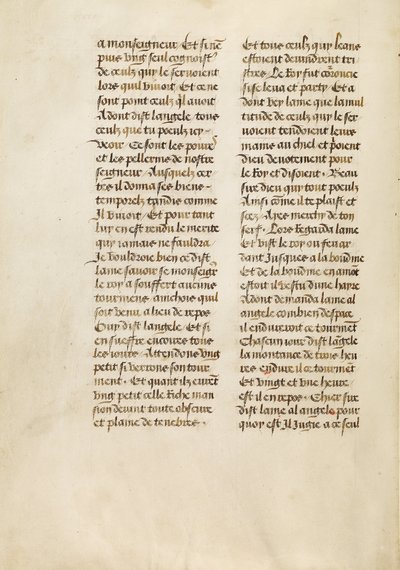 a monseigneur Et si ne
puis vng seul cognoistre
de ceulx quy le seruoient
lors quil viuoit Et ce ne
sont point ceulx ql auoit
Adont dist langele tous
ceulx que tu peulx icy
veoir Ce sont les poures
et les pellerins de nostre
seigneur Ausquelz cer
tes il donna ses biens
temporelz tandis comme
Il viuoit Et pour tant
luy en est rendu le merite
quy iamais ne fauldra
Je vouldroie bien ce dist
lame sauoir se monseigr
le roy a souffert aucuns
tourmens aincois quil
soit venu a lieu de repos
Ouy dist langele Et si
en sueffre encores tous
les iours Attendons vng
petit si verrons son tour
ment Et quant ilz eurent
vng petit celle riche man
sion deuint toute obscure
et plaine de tenebres
Et tous ceulx quy leans
estoient deuindrent tri
stres Le Roy fut couroucie
si se leua et party Et a
dont vey lame que la mul
titude de ceulx quy le ser
uoient tendoient leurs
mains au ciel et prioient
dieu deuotement pour
le Roy et disoient Beau
sire dieu quy tout peulz
Ainsi come il te plaist et
scez Ayes mercy de ton
serf Lors Regarda lame
Et vist le roy ou feu ar
dant Jusques a la boudine
Et de la boudine en amont
estoit il vestu dune hayre
Adont demanda lame al
angele combien despace
il endureroit ce tourmet
Chascun iour dist langele
la montance de trois heu
res endure il ce tourmet
Et vingt et vne heure
est il en repos Chier sire
dist lame al angele pour
quoy est Il Jugie a ce seul